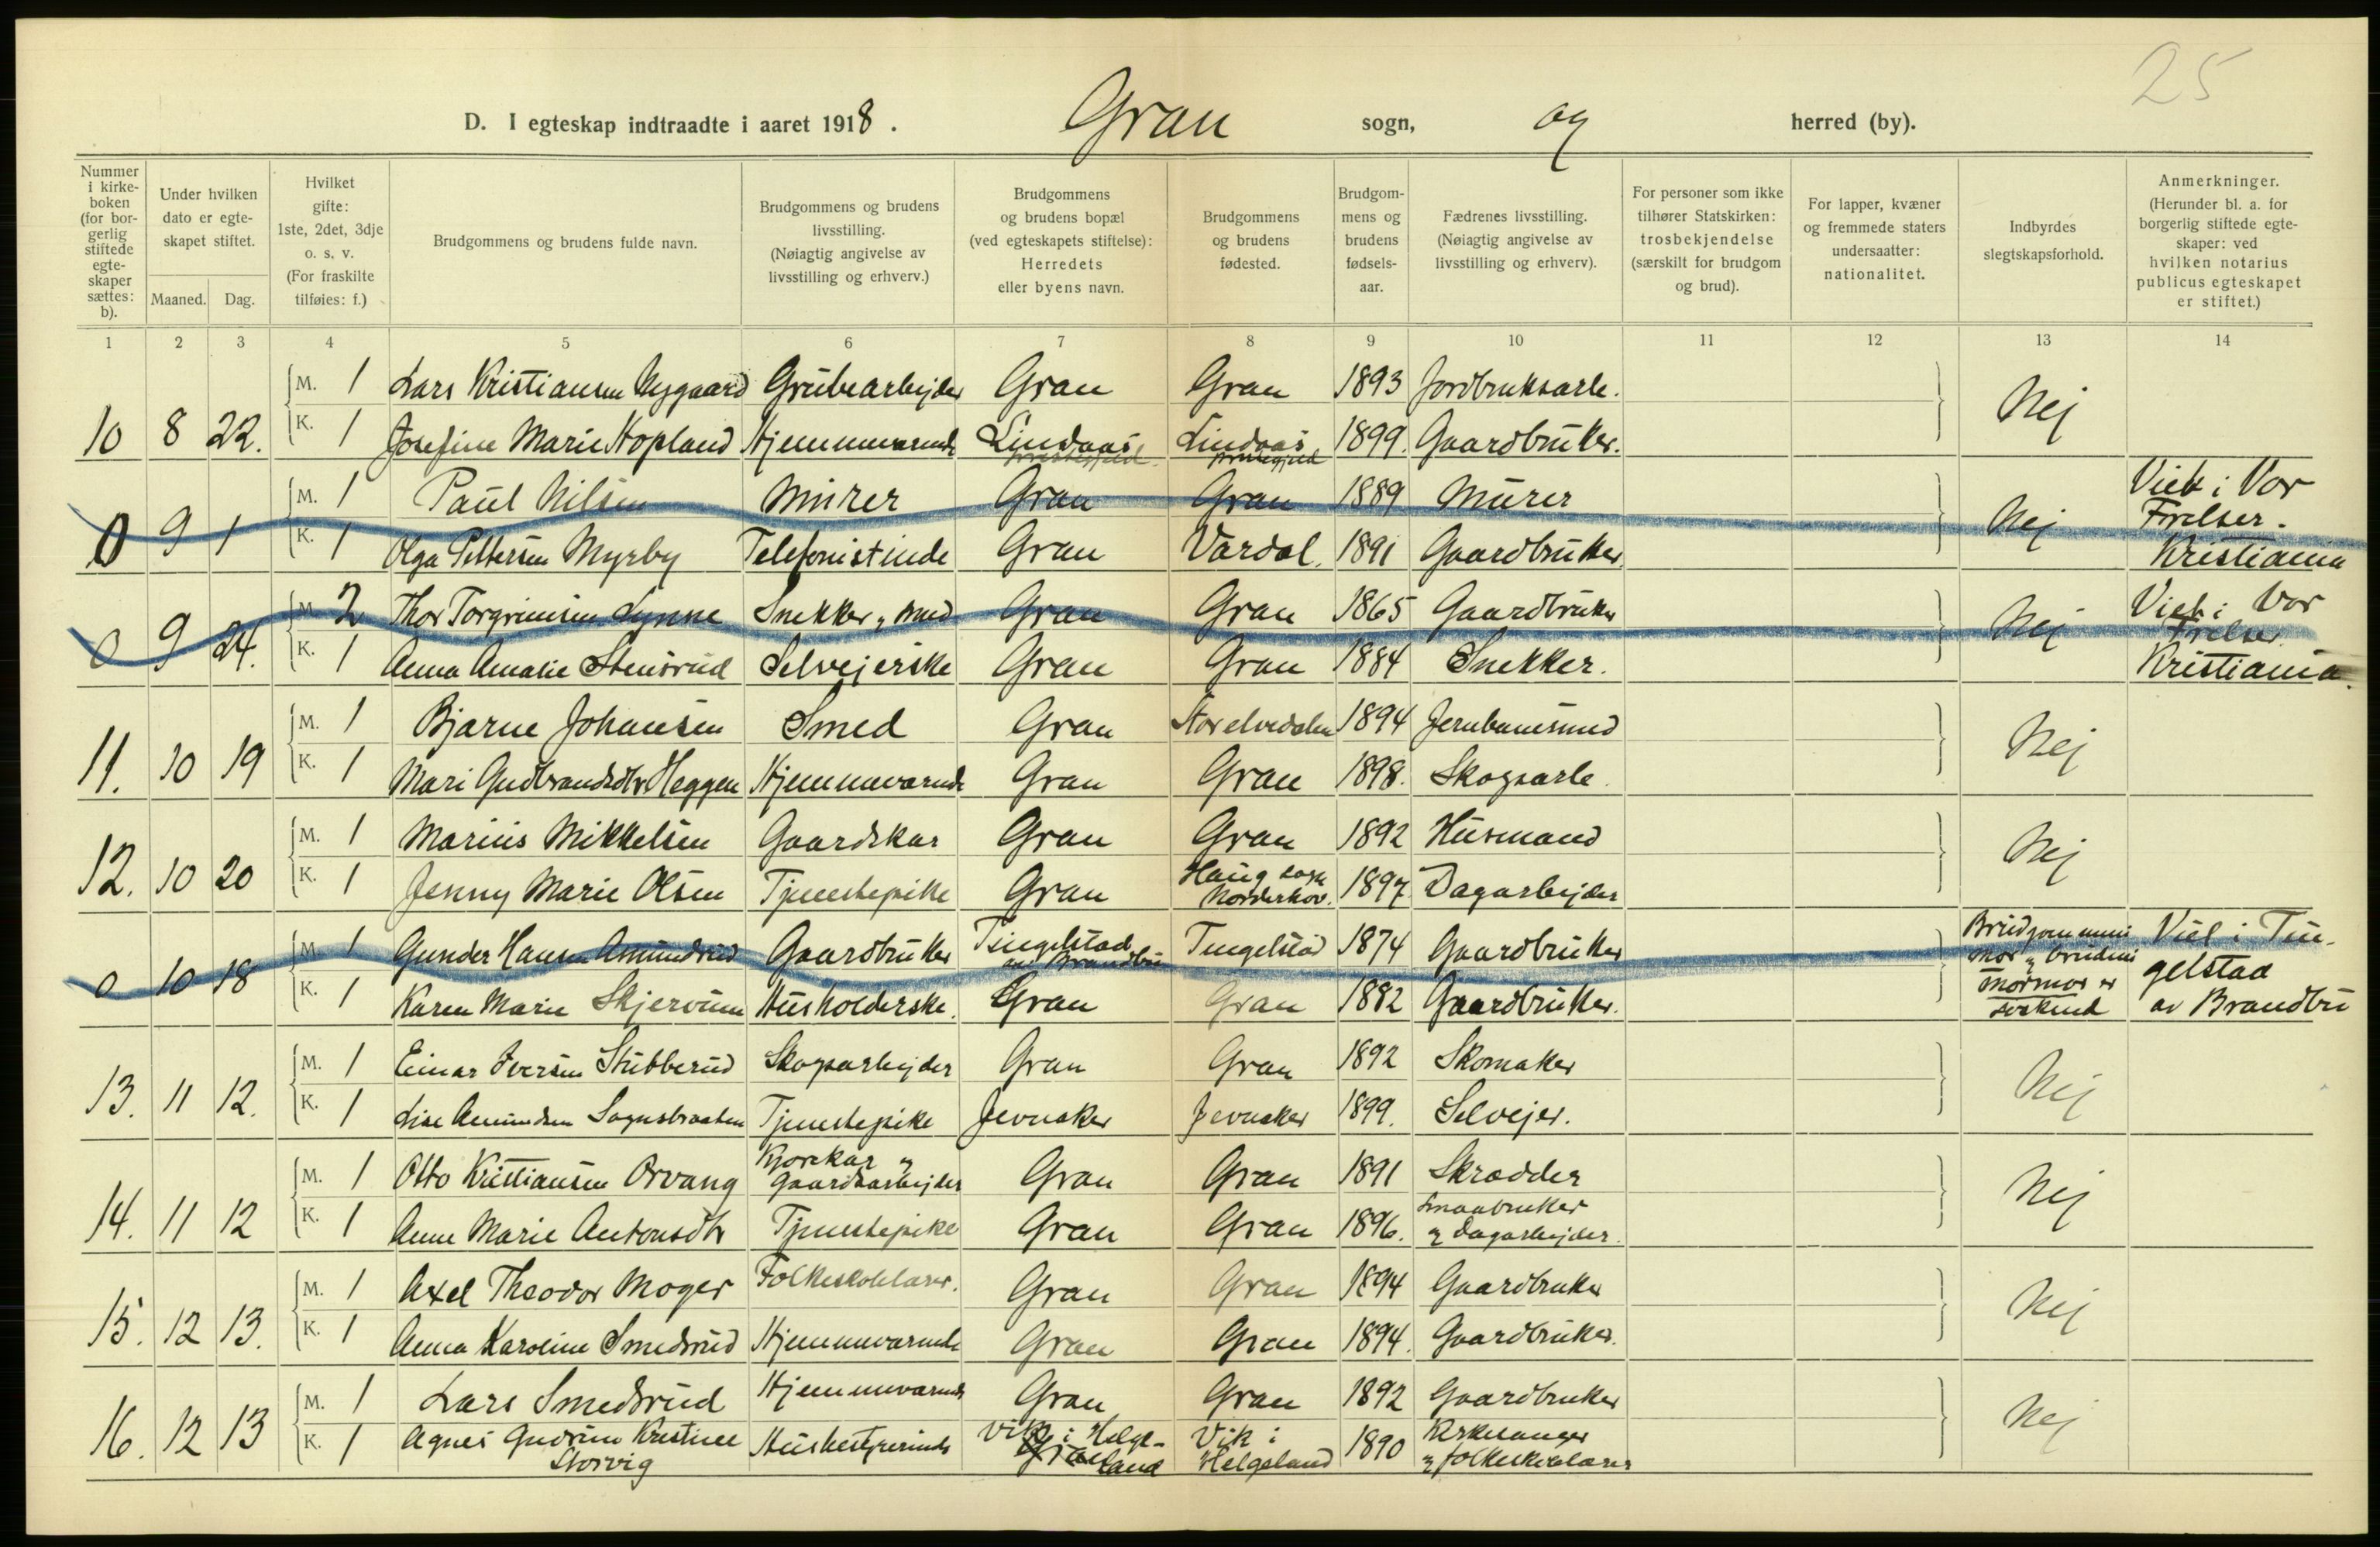 25
D. I egteskap indtraadte i aaret 1918. Gran sogn, og herred (by).
Nummer i kirke-boken (for bor-gerlig stiftede egte-skaper sættes: b).
Under hvilken dato er egte-skapet stiftet.
Maaned. Dag.
Hvilket gifte: 1ste, 2det, 3dje o. s. v. (For fraskilte tilføies: f.)
Brudgommens og brudens fulde navn.
Brudgommens og brudens livsstilling. (Nøiagtig angivelse av livsstilling og erhverv.)
Brudgommens og brudens bopæl (ved egteskapets stiftelse): Herredets eller byens navn.
Brudgommens og brudens fødested.
Brudgom-mens og brudens fødsels-aar.
Fædrenes livsstilling. (Nøiagtig angivelse av livsstilling og erhverv).
For personer som ikke tilhører Statskirken: trosbekjendelse (særskilt for brudgom og brud).
For lapper, kvæner og fremmede staters undersaatter: nationalitet.
Indbyrdes slegtskapsforhold.
Anmerkninger. (Herunder bl. a. for borgerlig stiftede egte-skaper: ved hvilken notarius publicus egteskapet er stiftet.)
1 2 3 4 5 6 7 8 9 10 11 12 13 14
M. 1 Lars Kristiansen Nygaard Grubearbejder Gran Gran 1893 Jordbruksarb.
10 8 22. K. 1 Josefine Marie Hopland Hjemmeværende Lindaas præstegjeld Lindaas præstegjeld 1899. Gaardbruker. Nej
M. 1 Paul Nilsen Murer Gran Gran 1889 Murer
0 9 1 K. 1 Olga Pettersen Myrby Telefonistinde Gran Vardal. 1891 Gaardbruker. Nej Viet i Vor Frelser. Kristiania
M. 2 Thor Torgrimsen Lynne Snekker, smed Gran Gran 1865 Gaardbruker
0 9 24. K. 1 Anna Amalie Stensrud Selvejerske Gran Gran 1884 Snekker. Nej Viet i Vor Frelser Kristiania.
M. 1 Bjarne Johansen Smed Gran Storelvedalen 1894 Jernbanesmed
11. 10 19 K. 1 Mari Gudbrandsdtr Heggen Hjemmeværende Gran Gran 1898. Skogsarb. Nej
M. 1 Marius Mikkelsen Gaardskar Gran Gran 1892 Husmand
12. 10 20 K. 1 Jenny Marie Olsen Tjenestepike Gran Haug sogn Norderhov. 1897 Dagarbejder Nej
M. 1 Gunder Hansen Amundrud Gaardbruker Tingelstad av Brandbu Tingelstad 1874 Gaardbruker
0 10 18 K. 1 Karen Marie Skjervum Husholderske. Gran Gran 1882 Gaardbruker. Brudgommens mor og brudens mormor er søskend Viet i Tin-gelstad av Brandbu
M. 1 Einar Iversen Stubberud Skogsarbejder Gran Gran 1892 Skomaker
13. 11 12. K. 1 Lise Amundsen Sognsbraaten Tjenestepike Jevnaker Jevnaker 1899. Selvejer. Nej
M. 1 Otto Kristiansen Orvang Kjørekar og Gaardsarbejder Gran Gran 1891 Skrædder
14. 11 12 K. 1 Anne Marie Antonsdtr Tjenestepike Gran Gran 1896. Smaabruker og Dagarbejder. Nej
M. 1 Axel Theodor Moger Folkeskolelærer. Gran Gran 1894 Gaardbruker
15. 12 13. K. 1 Anna Karoline Smedsrud Hjemmeværende Gran Gran 1894. Gaardbruker. Nej
M. 1 Lars Smedsrud Hjemmeværende Gran Gran 1892 Gaardbruker
16. 12 13 K. 1 Agnes Gudrun Kristine Storvig Husbestyrerinde Vik i Helge-land Vik i Helgeland 1890 Kirkesanger og folkeskolelærer Nej